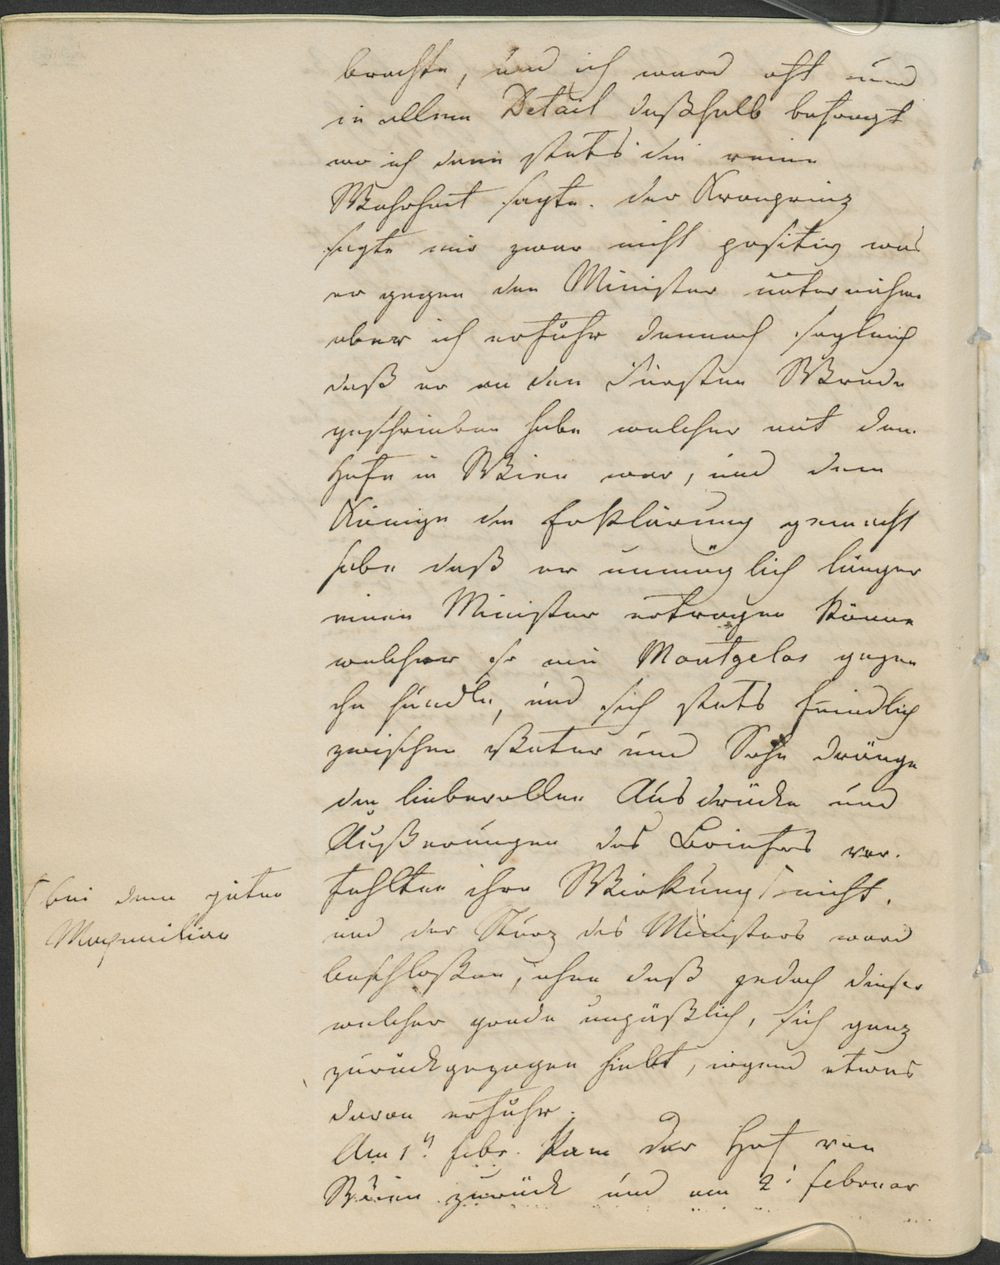 brachte, und ich ward oft und
in allem Detail deßhalb befragt
wo ich denn stets die reine
Wahrheit sagte. Der Kronprinz
sagte mir zwar nicht positiv was
er gegen den Minister unternehme
aber ich erfuhr dennoch sogleich
daß er an den Fürsten Wrede
geschrieben habe welcher mit dem
Hofe in Wien war, und dem
Könige die Erklärung gemacht
habe daß er unmöglich länger
einen Minister ertragen könne
welcher so wie Montgelas gegen
ihn handle, und sich stets feindlich
zwischen Vater und Sohn dränge
die liebevollen Ausdrücke und
Äußerungen des Briefes ver-
fehlten ihre Wirkung ⌈ nicht,
⌈ bei dem guten
Maximilian
und der Sturz des Ministers ward
beschloßen, ohne daß jedoch dieser
welcher grade unpäßlich, sich ganz
zurückgezogen hielt, irgend etwas
davon erfuhr.
Am 1n Febr. kam der Hof von
Wien zurück und am 2: Februar